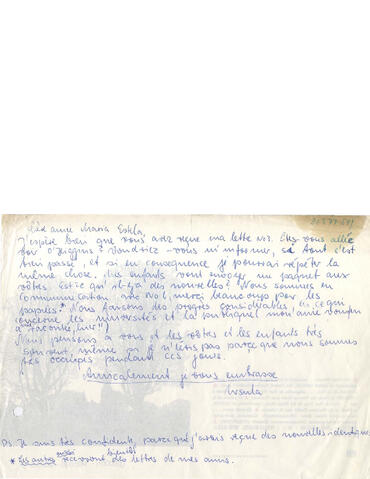 Maria Estela,
J'espère bien que vous avez reçue ma lettre No3. Etes-vous allée
voir O'Higgins? Voudriez-vous m'informer, si tout s'est
bien passé, et si en conséquence je pourrai répéter la
même chose. Les enfants vont envoyer un paquet aux
vôtres. Est-ce qu'il y a des nouvelles? Nous sommes en
communication avec No1, merci beaucoup pour les
papiers* Nous faisons des progrès considérables, en ce qui
concerne les universités et la
a raconté, hier")
Nous pensons à vous et des vôtres et les enfants très
souvent, même si je n'écris pas parce que nous sommes
très occupés pendant ces jours.
Amicalement je vous embrasse
Ursula
PS. Je suis très confidente, parce que j'avais reçue des nouvelles
* Les autres aussi bientôt
des lettres de mes amis.